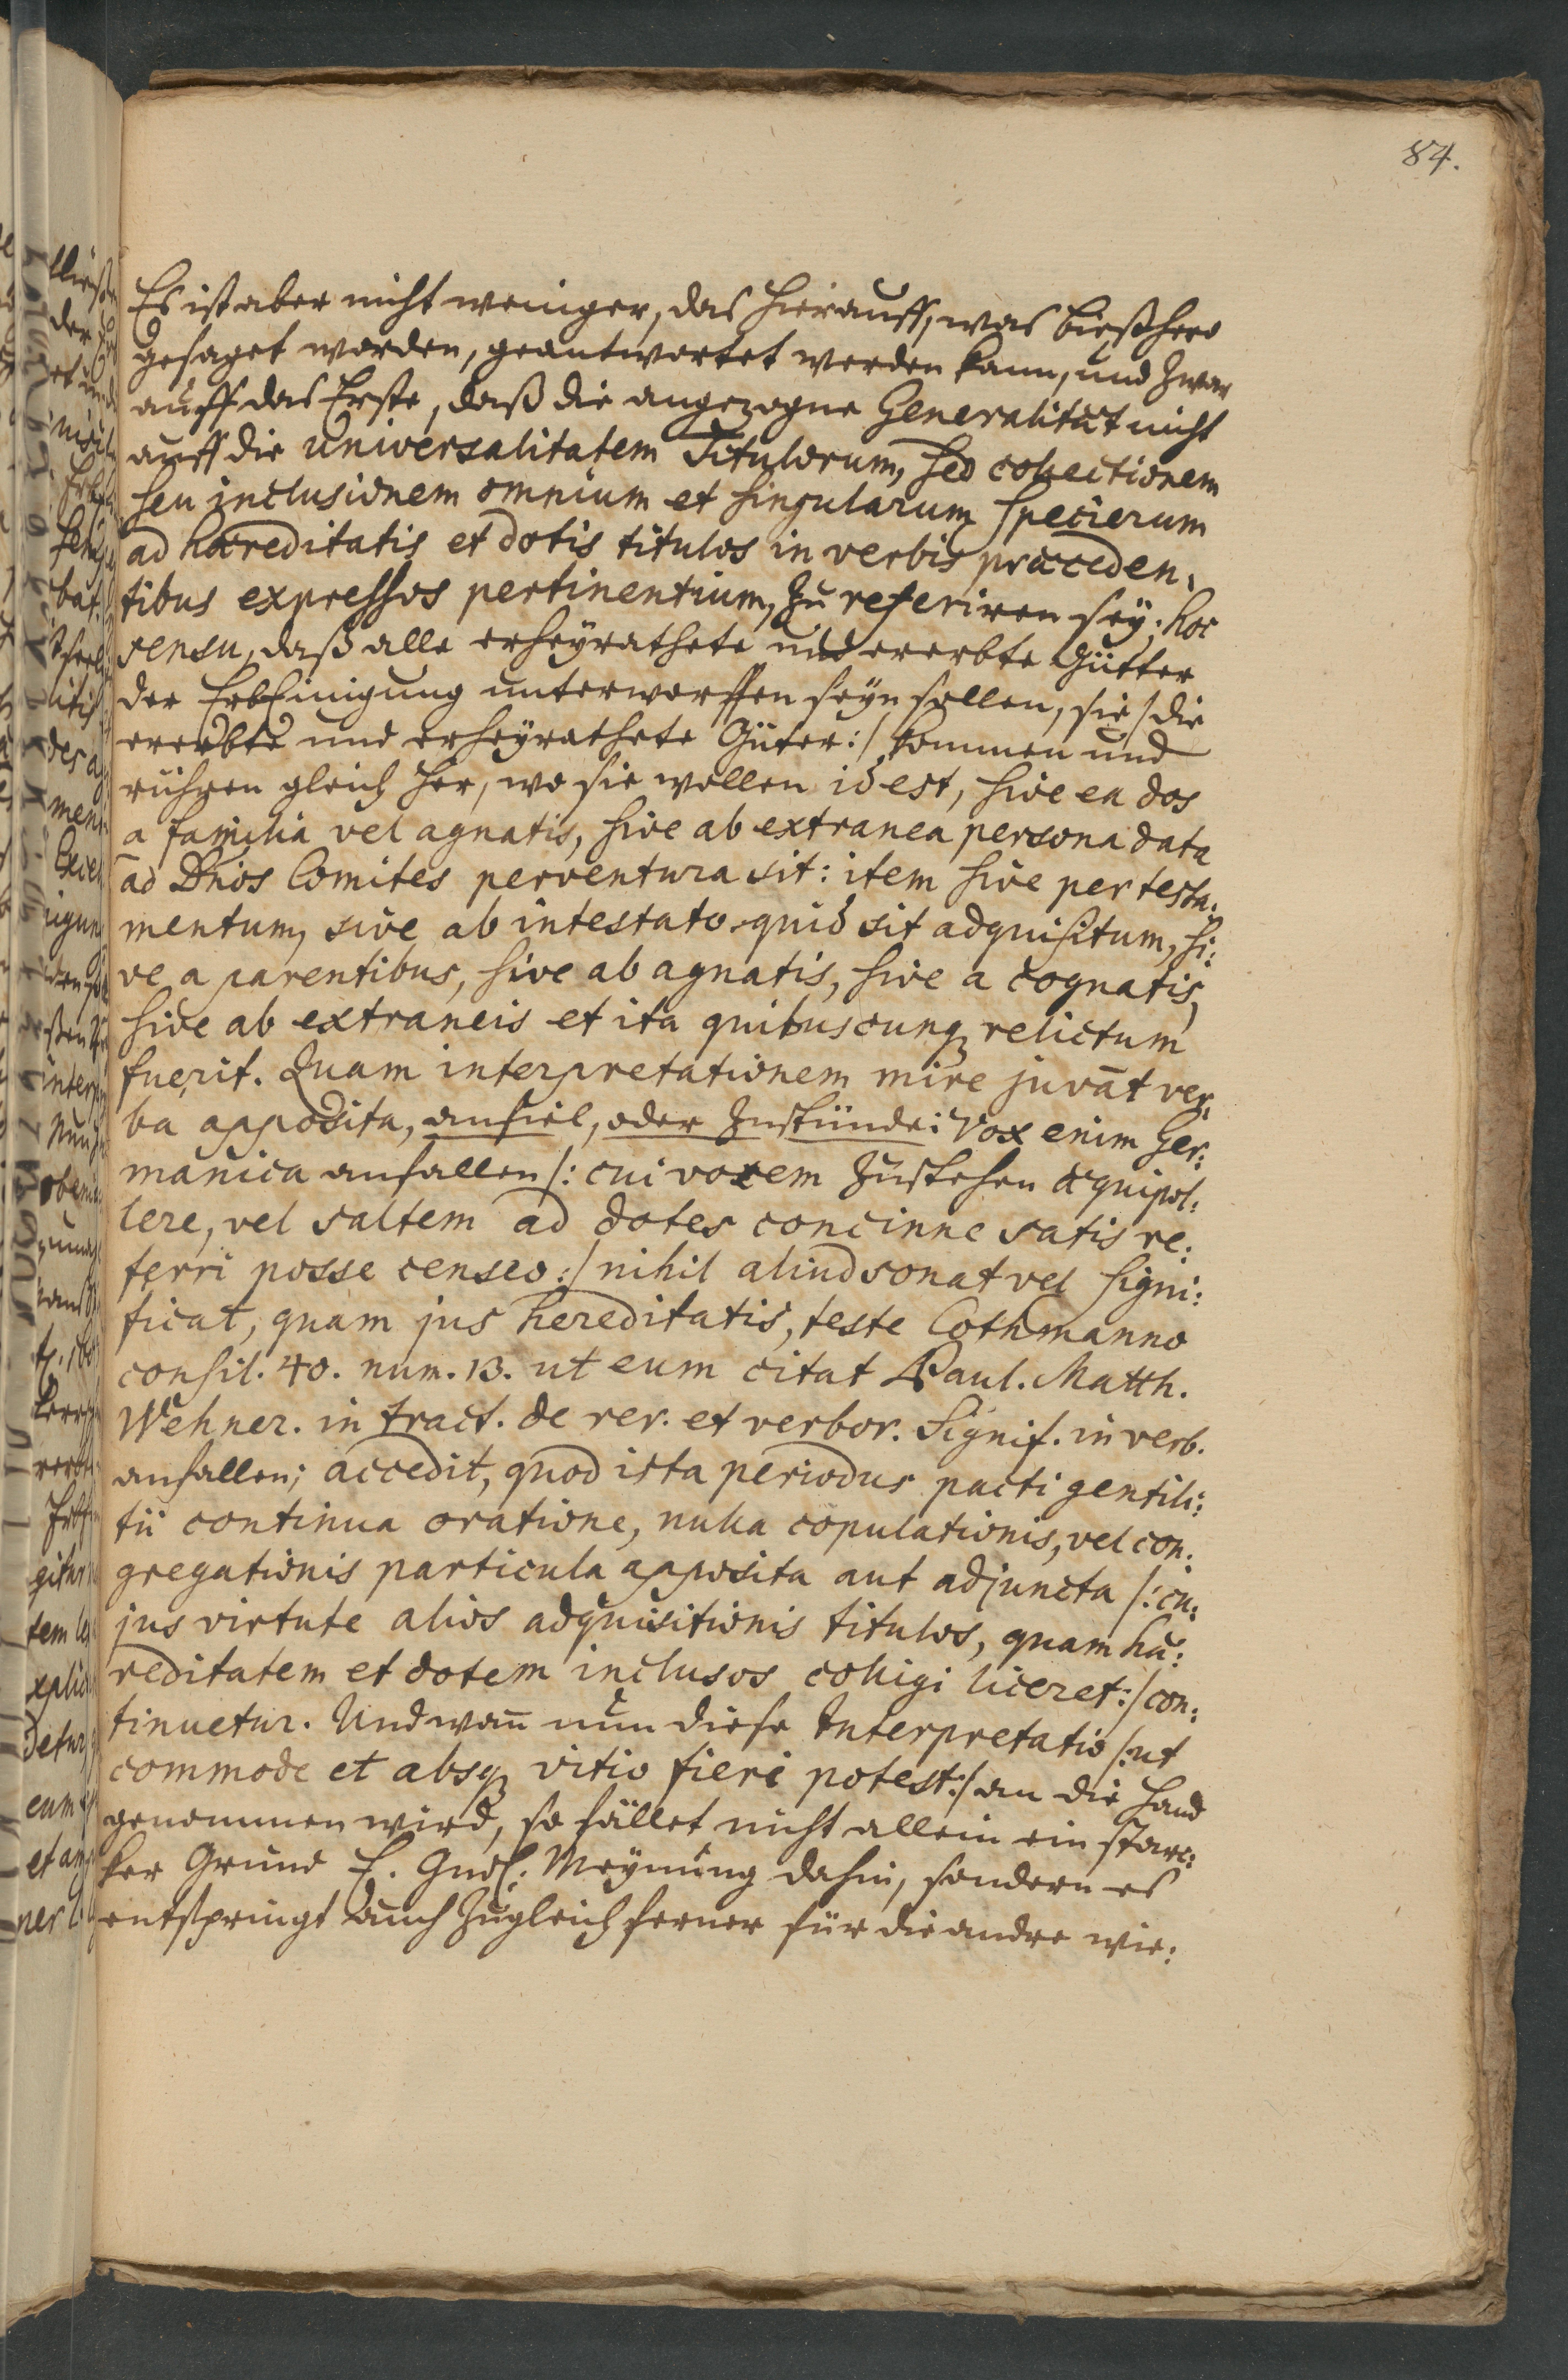 84.
Es ist aber nicht weniger, das hierauff, was bießhero
gesaget worden, geantwortet werden kann, und zwar
auff das Erste, daß die angezogne Generalitæt nicht
auff die universalitatem Titulorum, sed collectionem
seu inclusionem omnium et singularum specierum
ad hæreditatis et dotis titulos in verbis præceden,
tibus expressos pertinentium, zu referiren sey; hoc
sensu, daß alle erheyrathete und ererbte Gütter
der ErbEinigung unterworffen seyn sollen, sie /die
ererbte und erheyrathete Güter:/ kommen und
rühren gleich her, wo sie wollen id est, sive ea dos
a familia vel agnatis, sive ab extranea persona data
ad Dños Comites perventura sit: item sive per testa,
mentum, sive ab intestato quid sit adquisitum, si:
ve a parentibus, sive ab agnatis, sive a cognatis,
sive ab extraneis et ita quibuscunq relictum
fuerit. Quam interpretationem mire juvãt ver,
ba apposita, anfiel, oder zustünde: Vox enim Ger:
manica anfallen /: cui vocem zustehen æquipol:
lere, vel saltem ad dotes concinne satis re:
ferri posse censeo:/ nihil aliud sonat vel signi:
ficat, quam jus hereditatis, teste Cothmanno
consil. 40. num. 13. ut eum citat Paul. Matth.
Wehner. in tract. de rer. et verbor. Signif. in verb.
anfallen; accedit, quod ista periodus pacti gentili:
tii continua oratione, nulla copulationis, vel con:
gregationis particula apposita aut adjuncta /: cu:
jus virtute alios adquisitionis titulos, quam hæ:
reditatem et dotem inclusos colligi liceret:/ con:
tinuetur. Und wañ nun diese Interpretatio /: ut
commode et absq vitio fieri potest:/ an die Hand
genommen wird, so fället nicht allein ein starc:
ker Grund E. Gndl: Meynung dahin, sondern es
entspringt auch zugleich ferner für die andre wie: